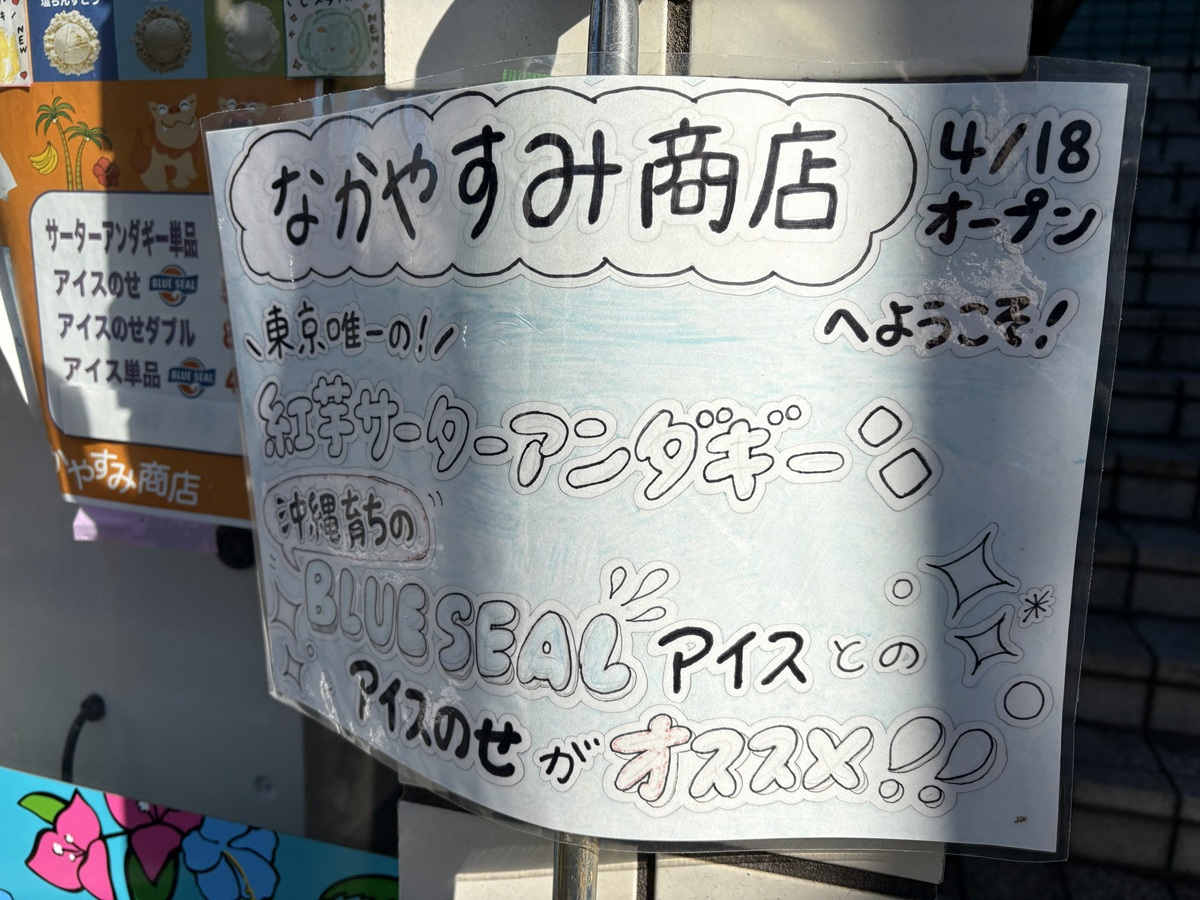 なかやすみ商店
4/18
オープン
へようこそ!
東京唯一の!
紅芋サーターアンダギー
沖縄育ちの
BLUE SEAL アイスとの
アイスのせがオススメ!!
NEW
NEW
サーターアンダギー単品
アイスのせ BLUE SEAL
アイスのせダブル
アイス単品 BLUE SEAL
やすみ商店